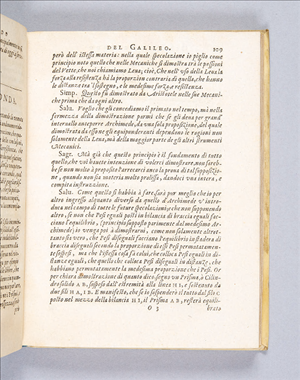 DEL GALILEO. 109
però dell' istessa materia: nella quale specolazione io piglio come
principio noto quello che nelle Mecaniche si dimostra trà le passioni
del Vette, che noi chiamiamo Leva; cioè, Che nell' uso della Leva la
forza alla resistenza hà la proporzion contraria di quella, che hanno
le distanze trà 'l sostegno, e le medesime forza, e resistenza.
Simp. Questo fu dimostrato da Aristotele nelle sue Mecani-
che prima che da ogni altro.
Salu. Voglio che gli concediamo il primato nel tempo, mà nella
fermezza della dimostrazione parmi che se gli deva per grand'
intervallo anteporre Archimede, da una sola proposizione, del quale
dimostrata da esso ne gli equiponderanti dependono le ragioni non
solamente della Leva, mà della maggior parte de gli altri strumenti
Mecanici.
Sagr. Mà già che questo principio è il fondamento di tutto
quello, che voi havete intenzione di volerci dimostrare, non sareb-
be se non molto à proposito l'arrecarci anco la prova di tal supposizio-
ne, quando non sia materia molto prolissa, dandoci una intera, e
compita instruzzione.
Salu. Come questo si habbia à fare, sarà pur meglio che io per
altro ingresso alquanto diverso da quello d' Archimede v' intro-
duca nel campo di tutte le future specolazioni; e che non supponendo
altro, se non che Pesi eguali posti in bilancia di braccia eguali fac-
ciano l'equilibrio, (principio supposto parimente dal medesimo Ar-
chimede) io venga poi à dimostrarvi, come non solamente altret-
tanto sia vero, che Pesi diseguali facciano l'equilibrio in stadera di
braccia diseguali secondo la proporzione di essi Pesi permutatamen-
te sospesi, ma che l'istessa cosa fà colui, che colloca Pesi eguali in di-
stanze eguali, che quello che colloca Pesi diseguali in distanze, che
habbiano permutatamente la medesima proporzione che i Pesi. Or
per chiara dimostrazione di quanto dico segno un Prisma, ò Cilin-
dro solido A B, sospeso dall' estremità alla linea H I, e sostenuto da
due fili H A, I B. È manifesto, che se io sospenderò il tutto dal filo C
posto nel mezzo della bilancia H I, il Prisma A B, resterà equili-
O 3 brato